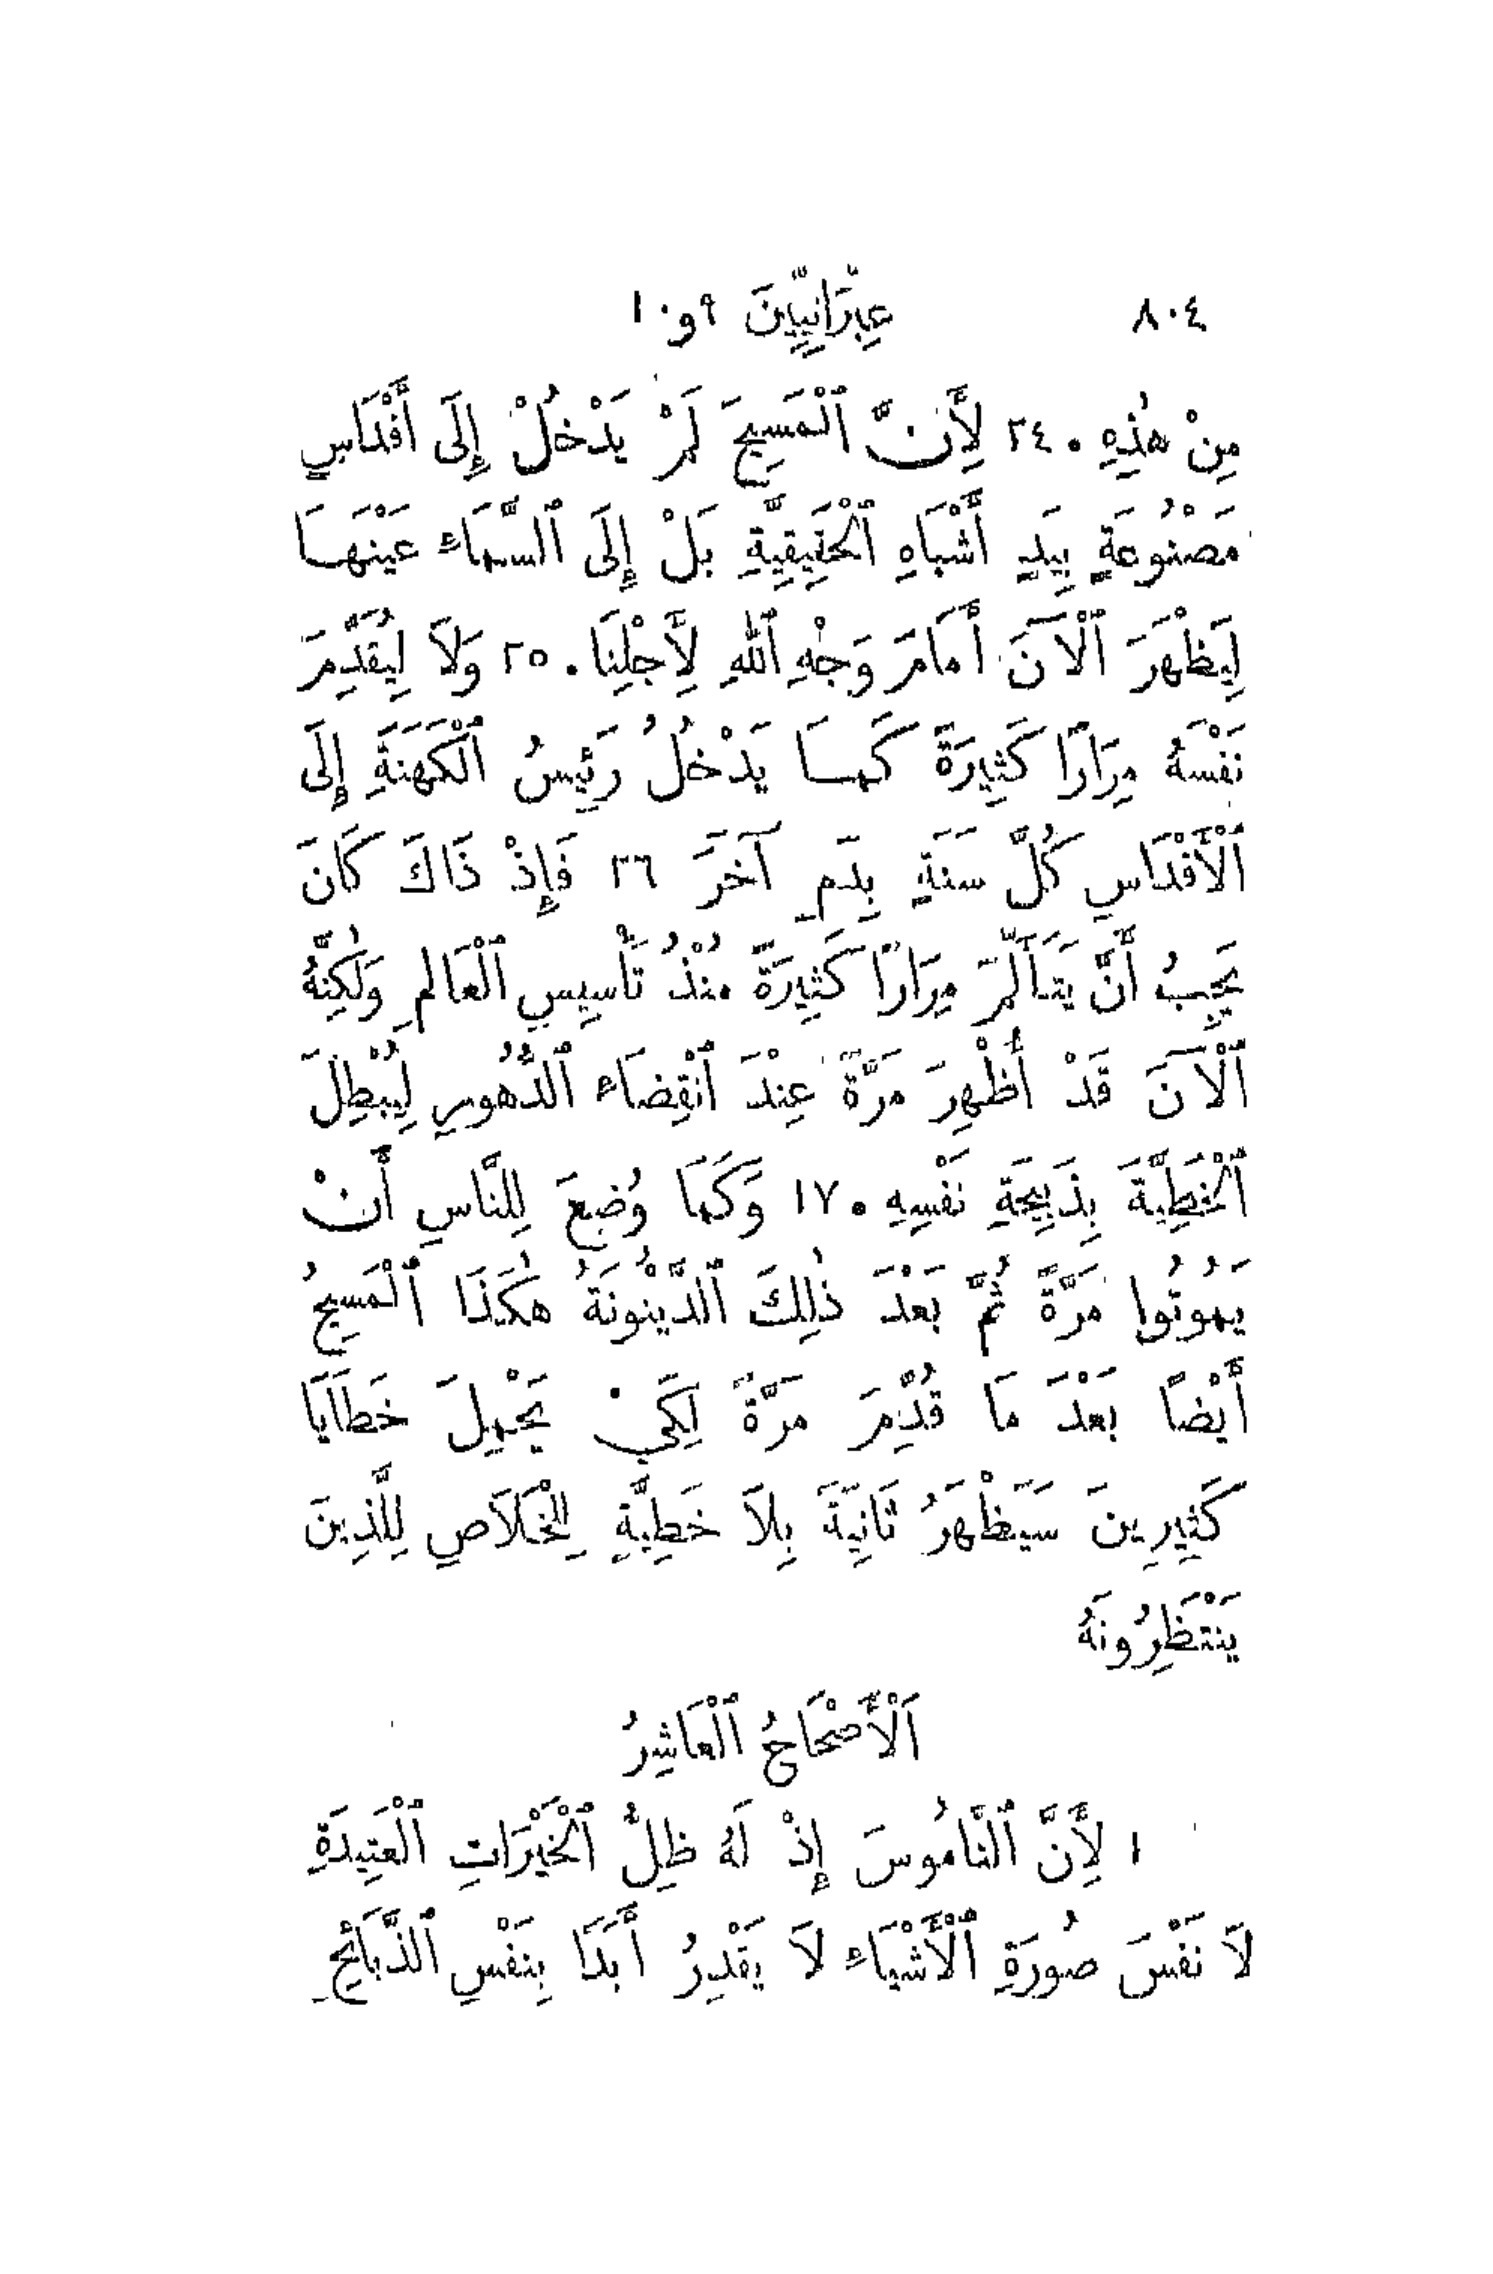 ٨٠٤ عِبْرَانِيِّينَ ٩ و ١٠
مِنْ هٰذِهِ . ٢٤ لِأَنَّ ٱلْمَسِيحَ لَمْ يَدْخُلْ إِلَى أَقْدَاسٍ
مَصْنُوعَةٍ بِيَدٍ أَشْبَاهِ ٱلْحَقِيقِيَّةِ بَلْ إِلَى ٱلسَّمَاءِ عَيْنِهَا
لِيَظْهَرَ ٱلْآنَ أَمَامَ وَجْهِ ٱللهِ لِأَجْلِنَا . ٢٥ وَلَا لِيُقَدِّمَ
نَفْسَهُ مِرَارًا كَثِيرَةً كَمَا يَدْخُلُ رَئِيسُ ٱلْكَهَنَةِ إِلَى
ٱلْأَقْدَاسِ كُلَّ سَنَةٍ بِدَمِ آخَرَ ٢٦ فَإِذْ ذَاكَ كَانَ
يَجِبُ أَنْ يَتَأَلَّمَ مِرَارًا كَثِيرَةً مُنْذُ تَأْسِيسِ ٱلْعَالَمِ وَلٰكِنَّهُ
ٱلْآنَ قَدْ أُظْهِرَ مَرَّةً عِنْدَ ٱنْقِضَاءِ ٱلدُّهُورِ لِيُبْطِلَ
ٱلْخَطِيَّةَ بِذَبِيحَةِ نَفْسِهِ . ١٧ وَكَمَا وُضِعَ لِلنَّاسِ أَنْ
يَمُوتُوا مَرَّةً ثُمَّ بَعْدَ ذٰلِكَ ٱلدَّيْنُونَةُ هٰكَذَا ٱلْمَسِيحُ
أَيْضًا بَعْدَ مَا قُدِّمَ مَرَّةً لِكَيْ يَحْمِلَ خَطَايَا
كَثِيرِينَ سَيَظْهَرُ ثَانِيَةً بِلَا خَطِيَّةٍ لِلْخَلَاصِ لِلَّذِينَ
يَنْتَظِرُونَهُ
اَلْأَصْحَاحُ ٱلْعَاشِرُ
١ لِأَنَّ ٱلنَّامُوسَ إِذْ لَهُ ظِلُّ ٱلْخَيْرَاتِ ٱلْعَتِيدَةِ
لَا نَفْسَ صُورَةِ ٱلْأَشْيَاءِ لَا يَقْدِرُ أَبَدًا بِنَفْسِ ٱلذَّبَائِحِ